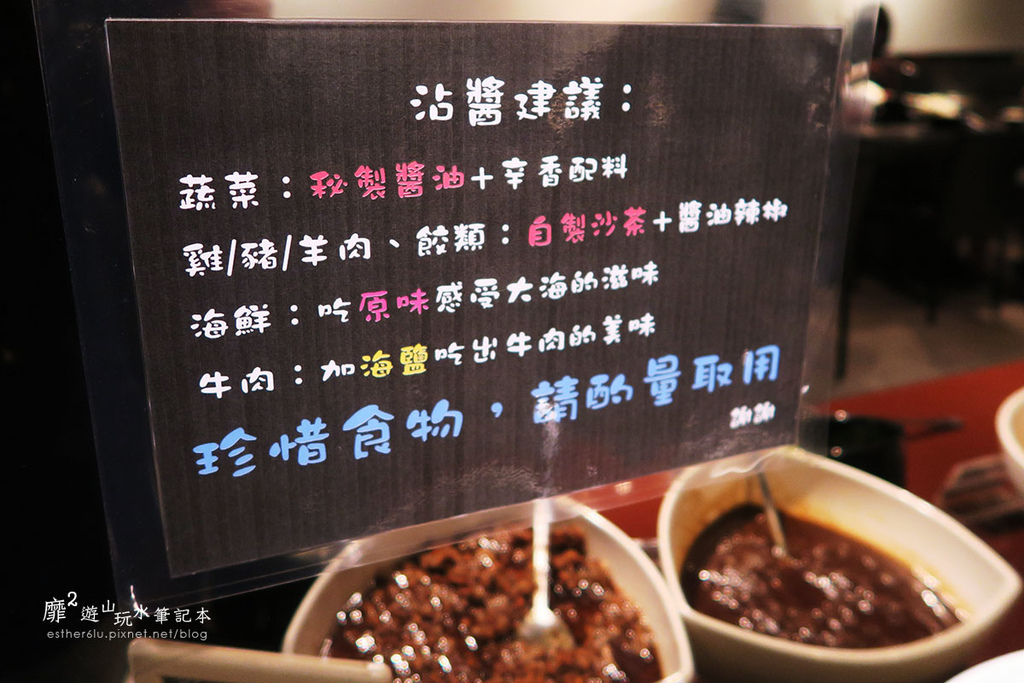 沾醬建議：
蔬菜：秘製醬油+辛香配料
雞/豬/羊肉、餃類：自製沙茶+醬油辣椒
海鮮：吃原味感受大海的滋味
牛肉：加海鹽吃出牛肉的美味
珍惜食物，請酌量取用
靡2遊山玩水筆記本
esther6lu.pixnet.net/blog